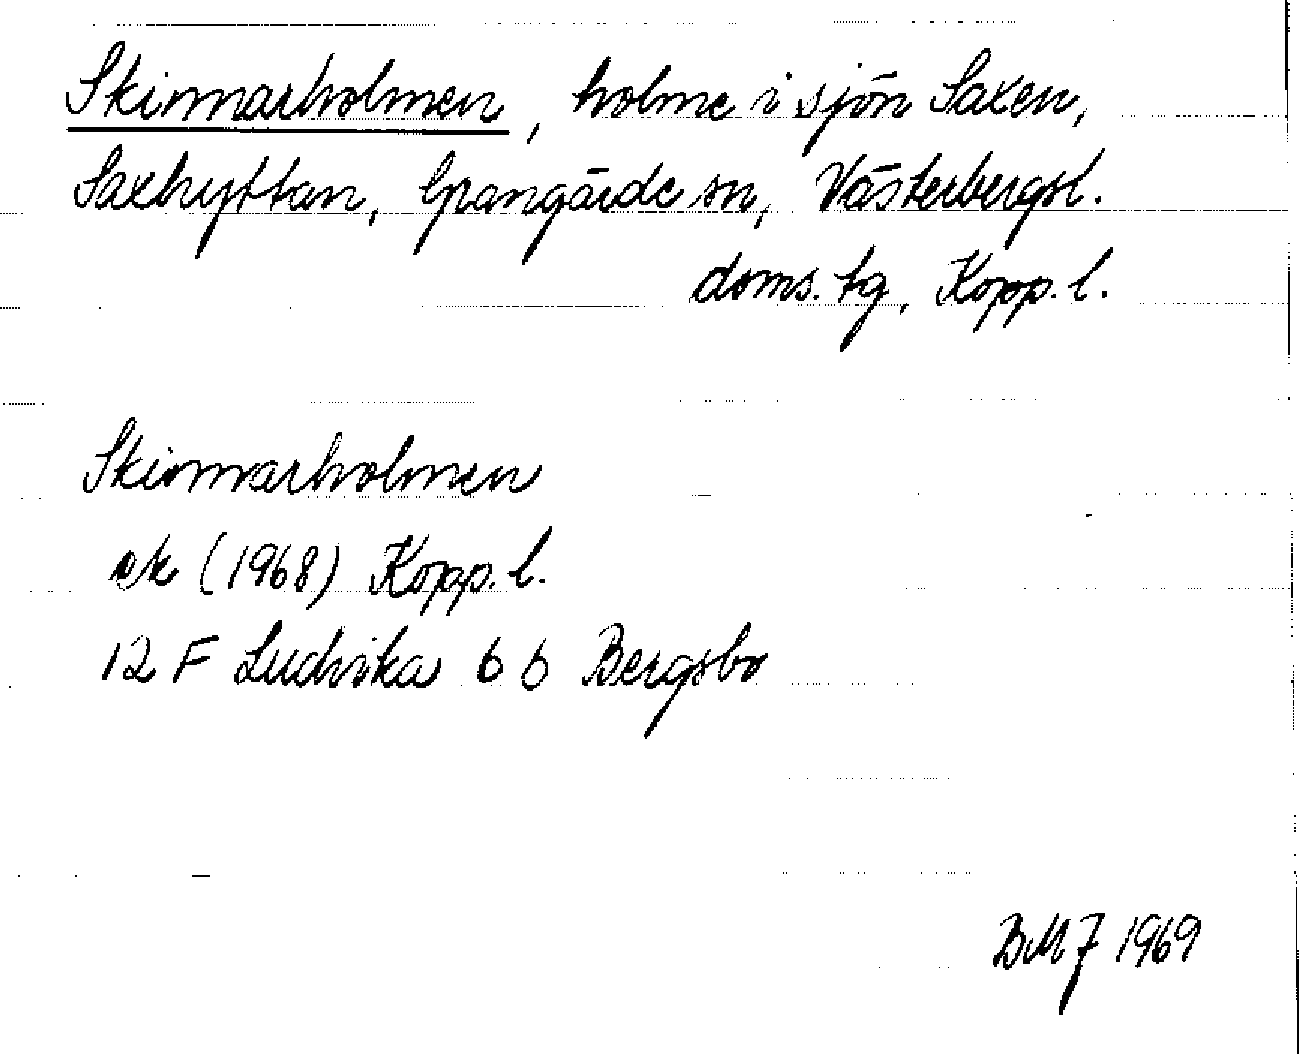 Skinnarholmen, holme i sjön Saxen,
Saxhyttan, Grangärde sn, Västerbergsl.
doms. tg, Kopp. l.
Skinnarholmen
ek (1968) Kopp. l.
12 F Ludvika 6 b Bergsbo
BMJ 1969